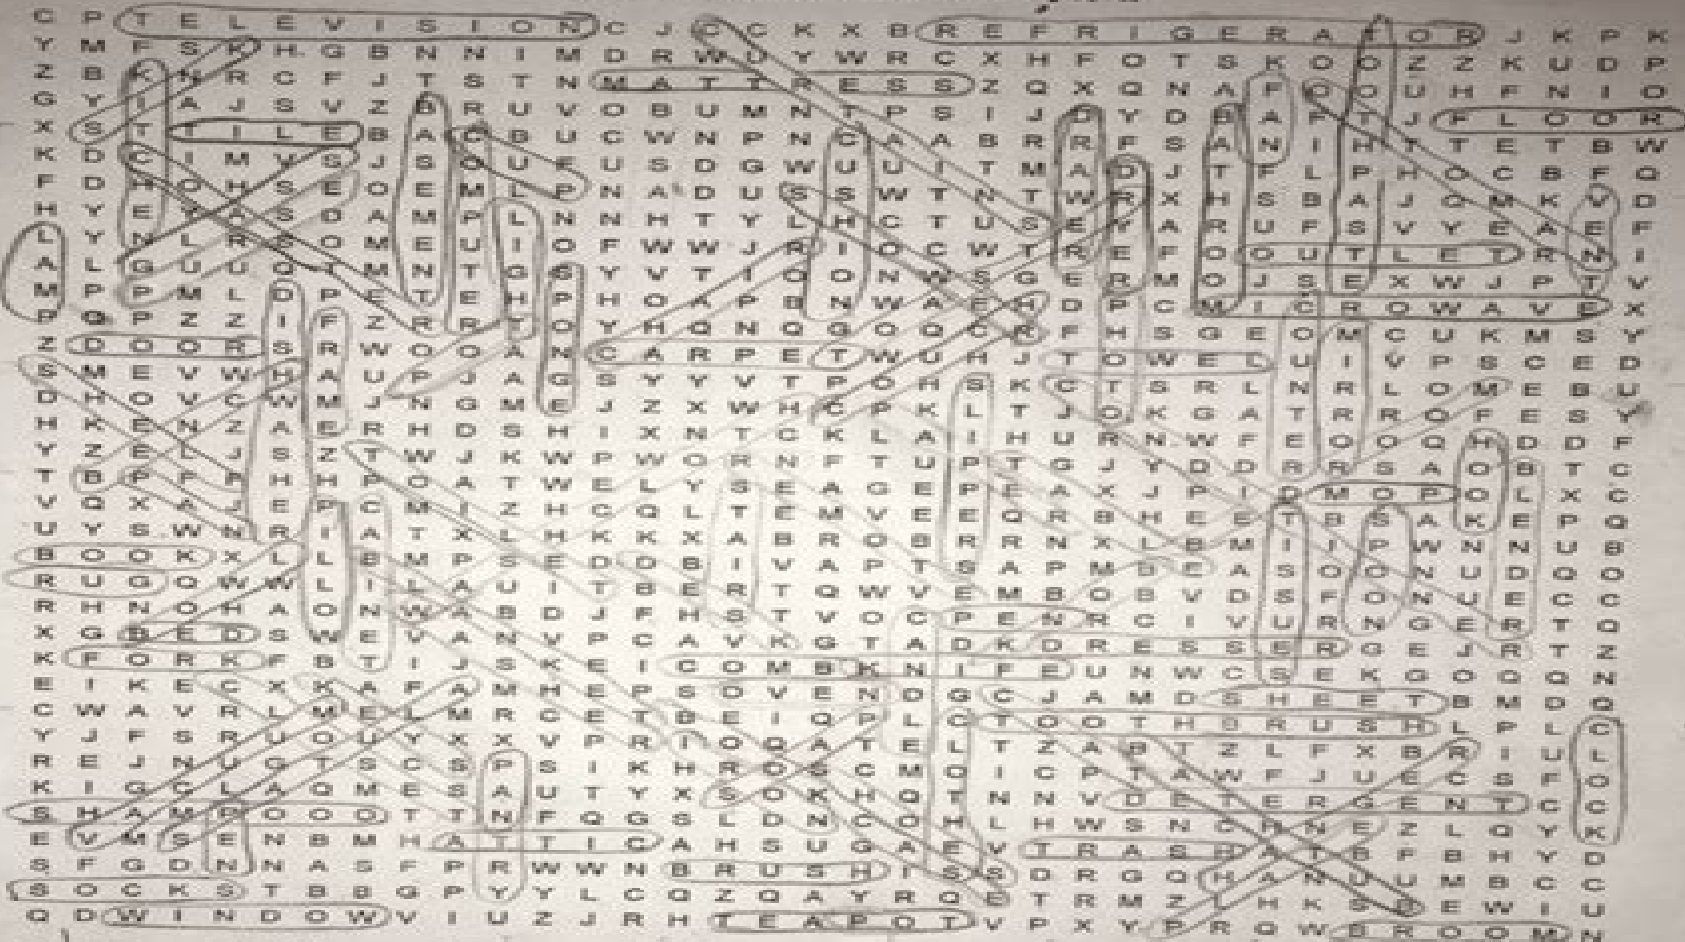 C P T E L E V I S I O N C J C C K X B R E F R I G E R A T O R J K P K
Y M F S K H G B N N I M D R W U Y W R C X H F O T S K O O Z Z K U D P
Z B K N R C F J T S T N M A T T R E S S Z Q X Q N A F O O U H F N I O
G Y I A J S V Z B R U V O B U M N T P S I J D Y D B A F T J F L O O R
X S T T I L E B A C B U C W N P N C A A B R R F S A N I H T T E T B W
K D C I M V S J S O U E U S D G W U U I T M A D J T F L P H O C B F Q
F D H O H S E O E M L P N A D U S S W T N T W R X H S B A J O M K V D
H Y E Y A S O A M P L N N H T Y L H C T U S E Y A R U F S V Y E A E F
L Y N L R S O M E U I O F W W J R I O C W T R E F O O U T L E T R N I
A L G U U O T M N T G S Y V T I O O N W S G E R M O J S E X W J P T V
M P P M L D P E T E H P H O A P B N W A E H D P C M I C R O W A V E X
P Q P Z Z I F Z R R T O Y H Q N Q G O Q C R F H S G E O M C U K M S Y
Z D O O R S R W O O A N C A R P E T W U H J T O W E L U I V P S C E D
S M E V W H A U P J A G S Y Y V T P O H S K C T S R L N R L O M E B U
D H O V C W M J N G M E J Z X W H C P K L T J O K G A T R R O F E S Y
H K E N Z A E R H D S H I X N T C K L A I H U R N W F E O O Q H D D F
Y Z E L J S Z T W J K W P W O R N F T U P T G J Y D D R R S A O B T C
T B P F P H H P O A T W E L Y S E A G E P E A X J P I D M O P O L X C
V Q X A J E P C M I Z H C Q L T E M V E E Q R B H E E T B S A K E P Q
U Y S W N R I A T X L H K K X A B R O B R R N X L B M I I P W N N U B
B O O K X L L B M P S E D O B I V A P T S A P M B E A S O O N U D Q O
R U G O W W L I L A U I T B E R T Q W V E M B O B V D S F O N U E C C
R H N O H A O N W A B D J F H S T V O C P E N R C I V U R N G E R T Q
X G B E D S W E V A N V P C A V K G T A D K D R E S S E R G E J R T Z
K F O R K F B T I J S K E I C O M B K N I F E U N W C S E K G O Q Q N
E I K E C X K A F A M H E P S O V E N D G C J A M D S H E E T B M D Q
C W A V R L M E L M R C E T B E I Q P L C T O O T H B R U S H L P L C
Y J F S R U O U Y X X V P R I O Q A T E L T Z A B T Z L F X B R I U L
R E J N U G T S C S P S I K H R O S C M O I C P T A W F J U E C S F O
K I G C L A Q M E S A U T Y X S O K H Q T N N V D E T E R G E N T C C
S H A M P O O O T T N F Q G S L D N C O H L H W S N C H N E Z L Q Y K
E V M S E N B M H A T T I C A H S U G A E V T R A S H A T B F B H Y D
S F G D N N A S F P R W W N B R U S H I S S D R G Q H A N U U M B C C
S O C K S T B B G P Y Y L C Q Z Q A Y R Q E T R M Z L H K S D E W I U
Q D W I N D O W V I U Z J R H T E A P O T V P X Y P R Q W B R O O M N